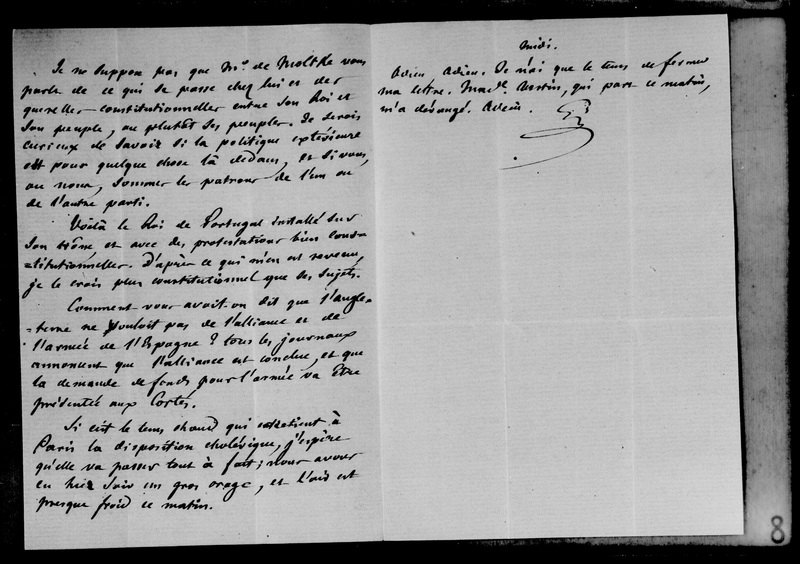 Je ne suppose pas que Mr. de Moltke vous
parle de ce qui se passe chez lui et des
querelles constitutionnelles entre son Roi et
son peuple, ou plutôt ses peuples. Je serois
curieux de savoir si la politique extérieure
est pour quelque chose là dedans, et si vous,
ou nous, sommes les patrons de l'un ou
de l'autre parti.
Voilà le Roi de Portugal installé sur
son trône et avec des protestations bien cons-
=titutionnelles. D'après ce qui m'en est revenu,
je le crois plus constitutionnel que ses sujets.
Comment vous avoit-on dit que l'angle-
=terre ne vouloit pas de l'alliance et de
l'armée de l'Espagne ? tous les journaux
annoncent que l'alliance est conclue, et que
la demande de fonds pour l'armée va être
présentée aux Cortès.
Si c'est le tems chaud qui entretient à
Paris la disposition cholérique, j'espère
qu'elle va passer tout à fait ; nous avons
eu hier soir un gros orage, et l'air est
presque froid ce matin.
Midi.
Adieu, Adieu. Je n'ai que le tems de fermer
ma lettre. Mad. Austin, qui part ce matin,
m'a dérangé. Adieu.
G
8